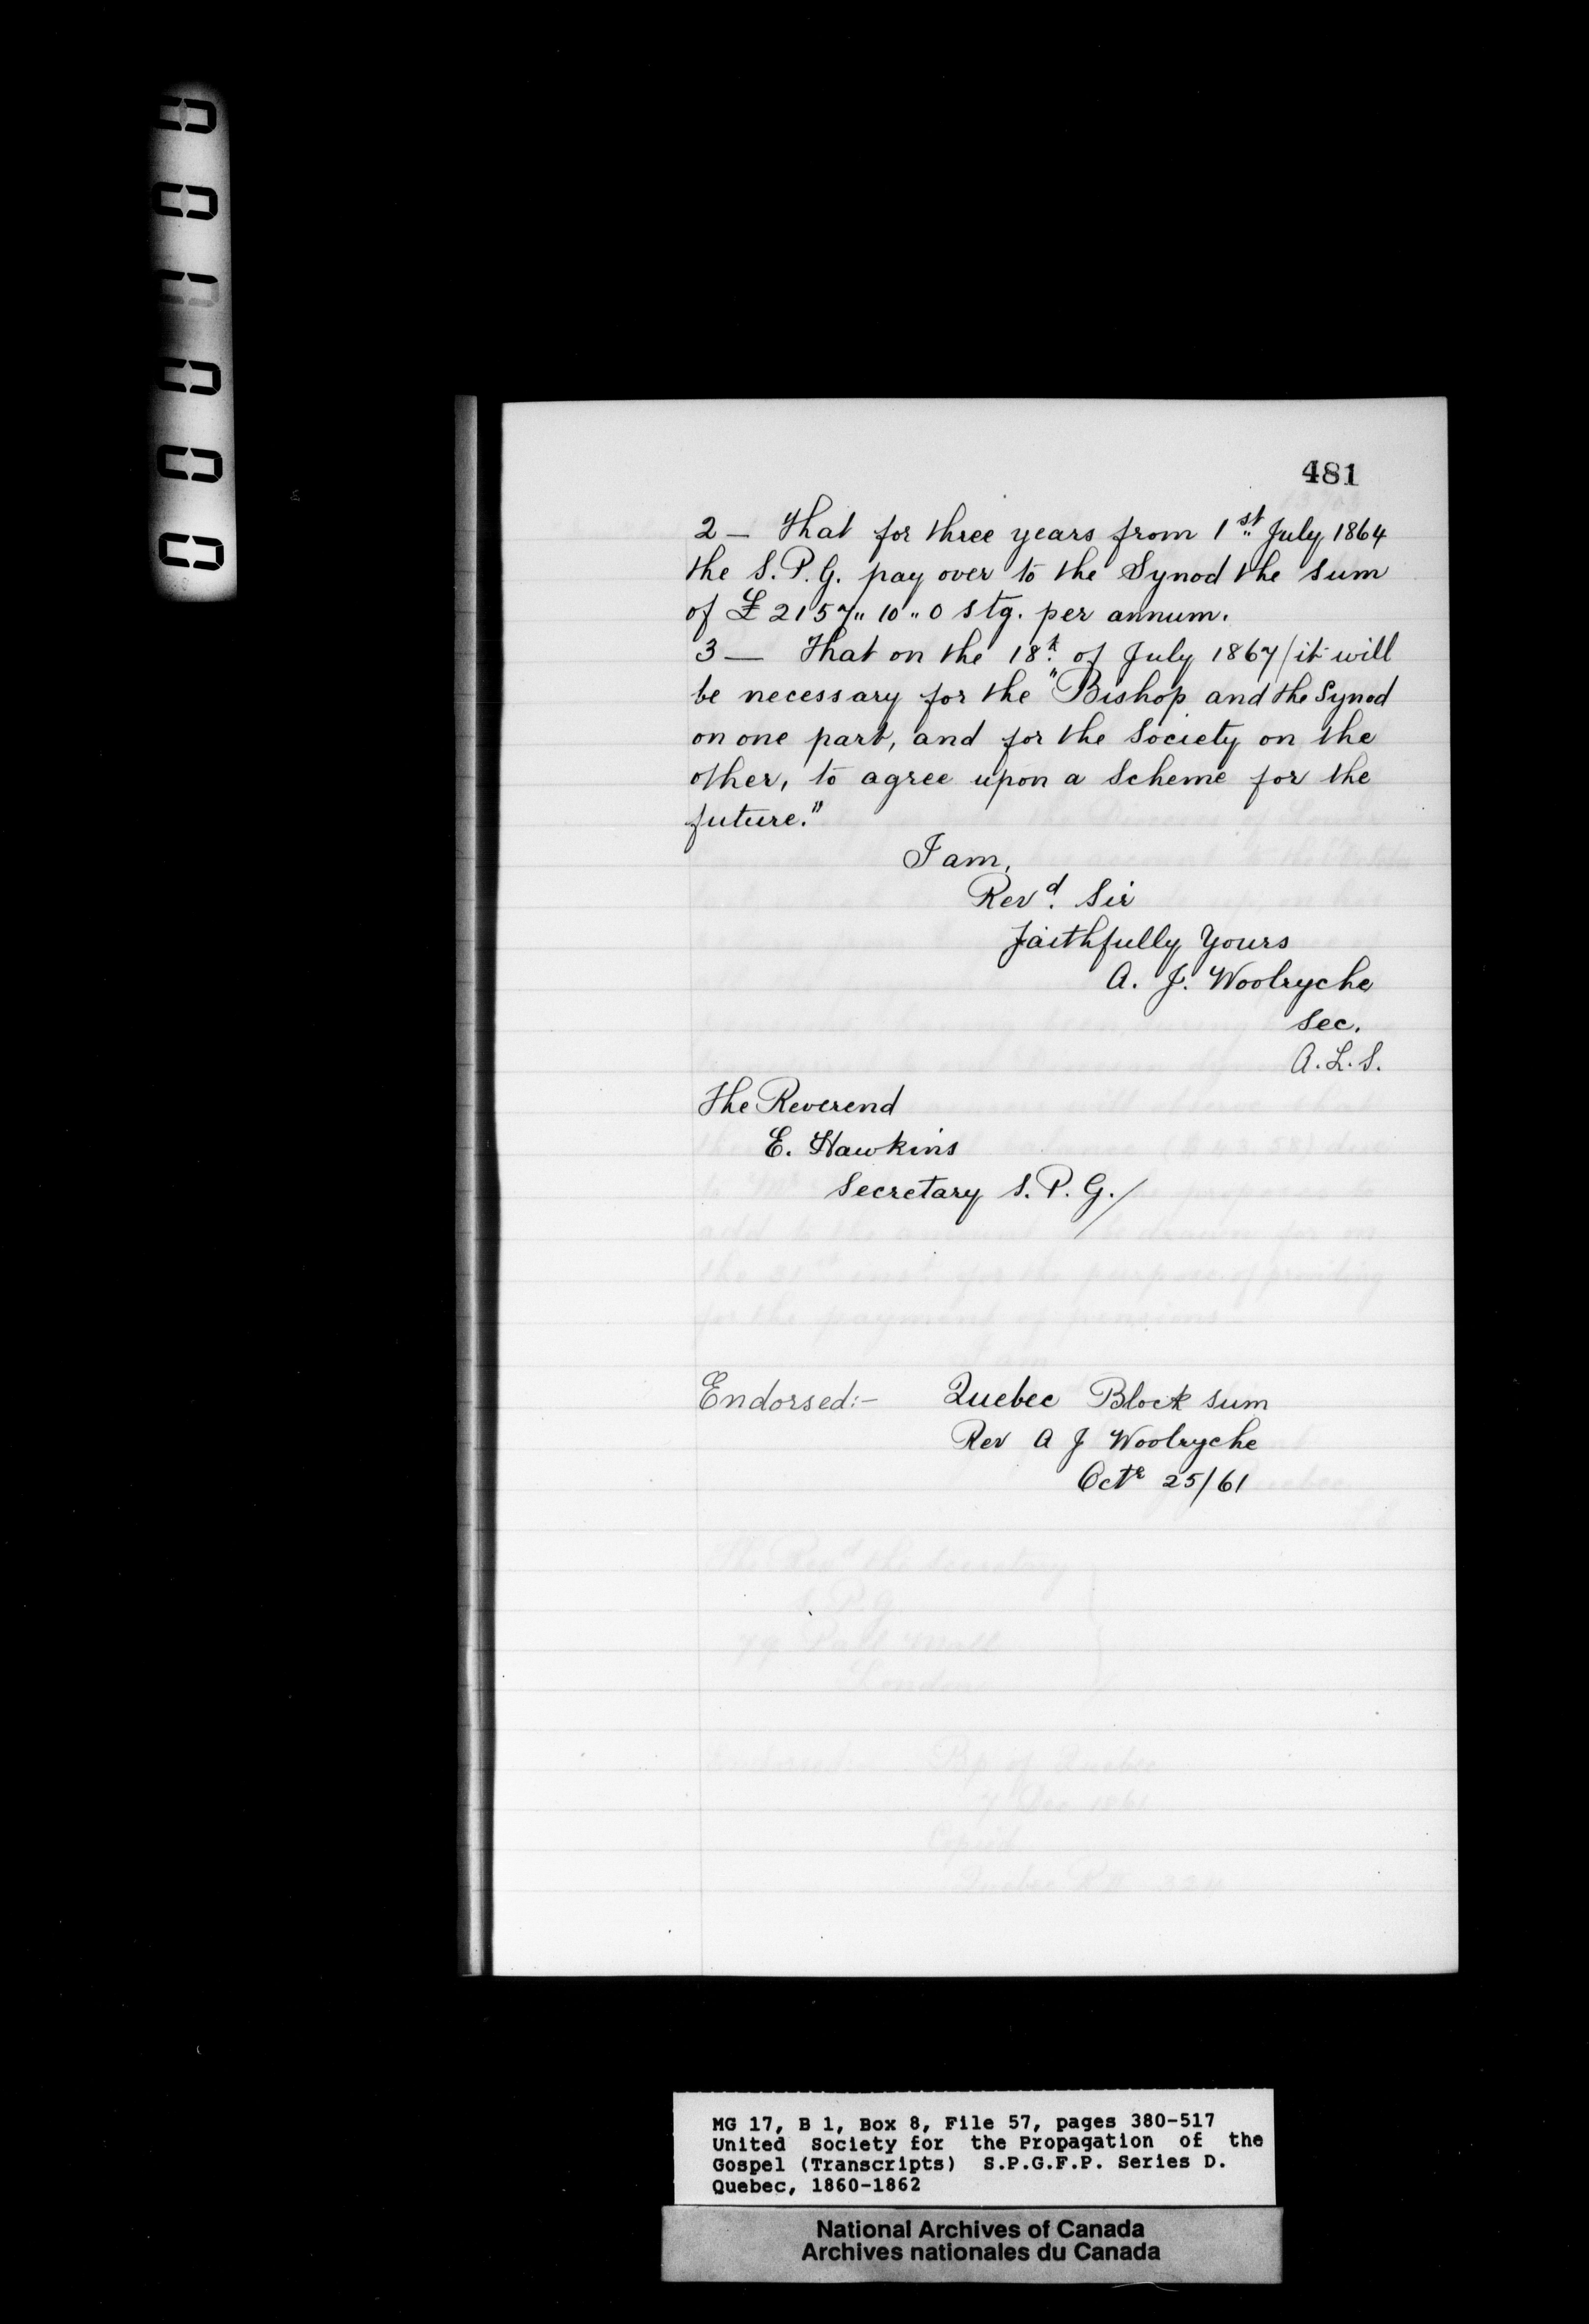 481
2 — That for three years from 1st July 1864
the S.P.G. pay over to the Synod the sum
of £2157,, 10,, 0 stg. per annum.
3 — That on the 18th of July 1867/ it will
be necessary for the "Bishop and the Synod
on one part, and for the Society on the
other, to agree upon a Scheme for the
future."
I am,
Revd. Sir
faithfully Yours
A. J. Woolryche
Sec.
A.L.S.
The Reverend
E. Hawkins
Secretary S.P.G./
Endorsed:- Quebec Block sum
Rev A J Woolryche
Octr 25/61
MG 17, B 1, Box 8, File 57, pages 380-517
United Society for the Propagation of the
Gospel (Transcripts) S.P.G.F.P. Series D.
Quebec, 1860-1862
National Archives of Canada
Archives nationales du Canada